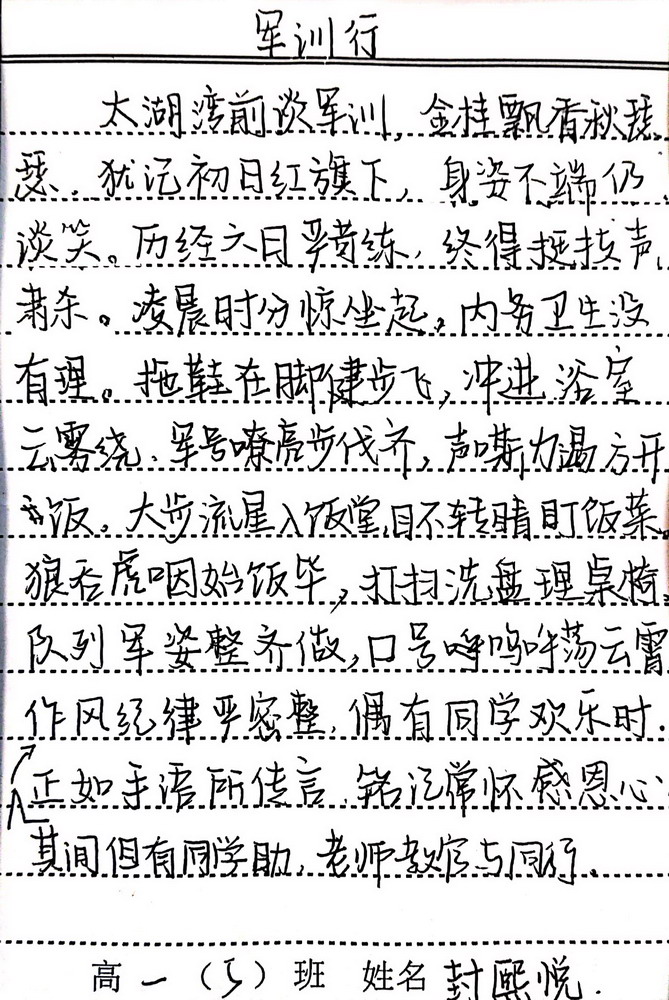 军训行
太湖湾前谈军训,金桂飘香秋瑟
瑟.犹记初日红旗下,身姿不端仍
谈笑。历经六日严苛练,终得挺拔声
肃杀。凌晨时分惊坐起,内务卫生没
有理。拖鞋在脚健步飞,冲进浴室
云雾绕.军号嘹亮步伐齐,声嘶力竭方开
饭。大步流星入饭堂,目不转睛盯饭菜。
狼吞虎咽始饭毕,打扫洗盘理桌椅。
队列军姿整齐做,口号呜呼荡云霄
作风纪律严密整,偶有同学欢乐时.
正如手语所传言.铭记常怀感恩心
其间但有同学助,老师教官与同行.
高一(5)班 姓名 封熙悦.